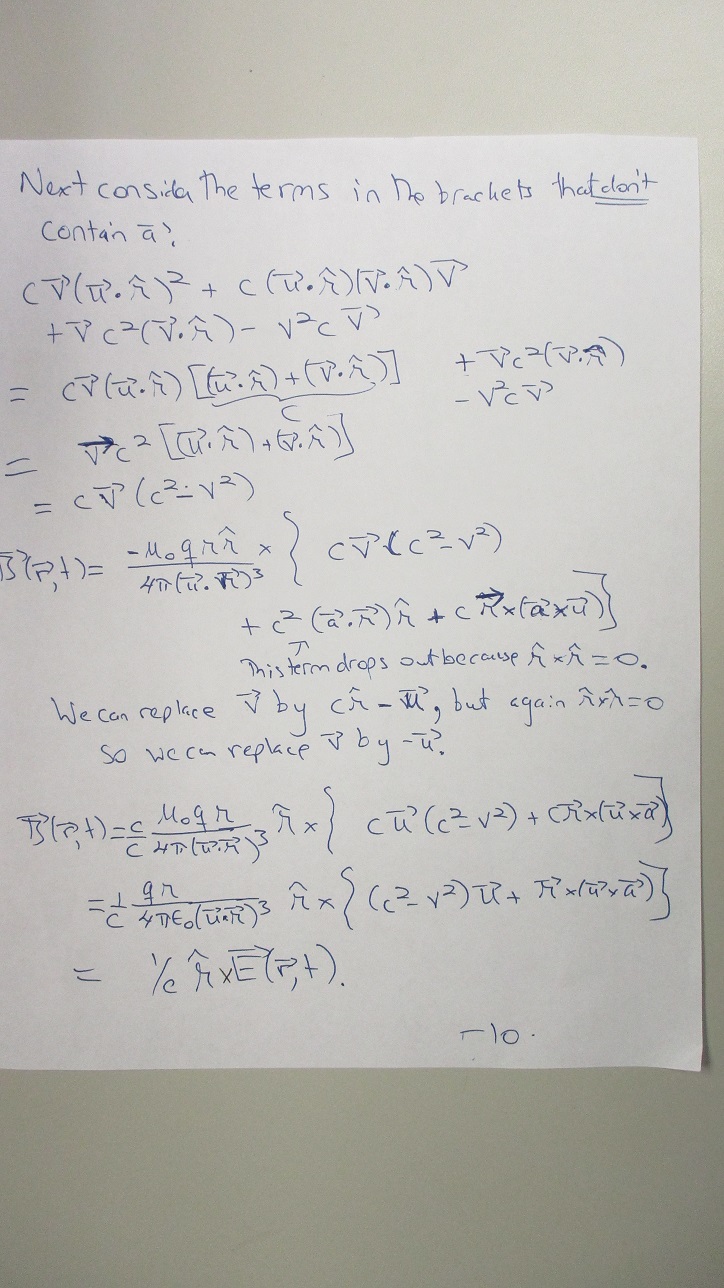 Next consider the terms in the brackets that don't
contain a⃗:
c v⃗(u⃗·r̂)² + c(u⃗·r̂)(v⃗·r̂)v⃗
+ v⃗ c²(v⃗·r̂) - v²c v⃗
= c v⃗(u⃗·r̂)[(u⃗·r̂)+(v⃗·r̂)] + v⃗c²(v⃗·r̂)
c - v²c v⃗
= v⃗c²[(u⃗·r̂)+(v⃗·r̂)]
= c v⃗(c²-v²)
B⃗(r⃗,t) = -μ₀q r r̂ / 4π(u⃗·r⃗)³ × { c v⃗(c²-v²)
+ c²(a⃗·r⃗)r̂ + c r⃗×(a⃗×u⃗)}
↑
This term drops out because r̂×r̂=0.
We can replace v⃗ by c r̂ - u⃗, but again r̂×r̂=0
So we can replace v⃗ by -u⃗.
B⃗(r⃗,t) = c/c μ₀q r / 4π(u⃗·r⃗)³ r̂ × { c u⃗(c²-v²) + c r⃗×(u⃗×a⃗)}
= 1/c q r / 4πε₀(u⃗·r⃗)³ r̂ × {(c²-v²)u⃗ + r⃗×(u⃗×a⃗)}
= 1/c r̂×E⃗(r⃗,t).
-10.